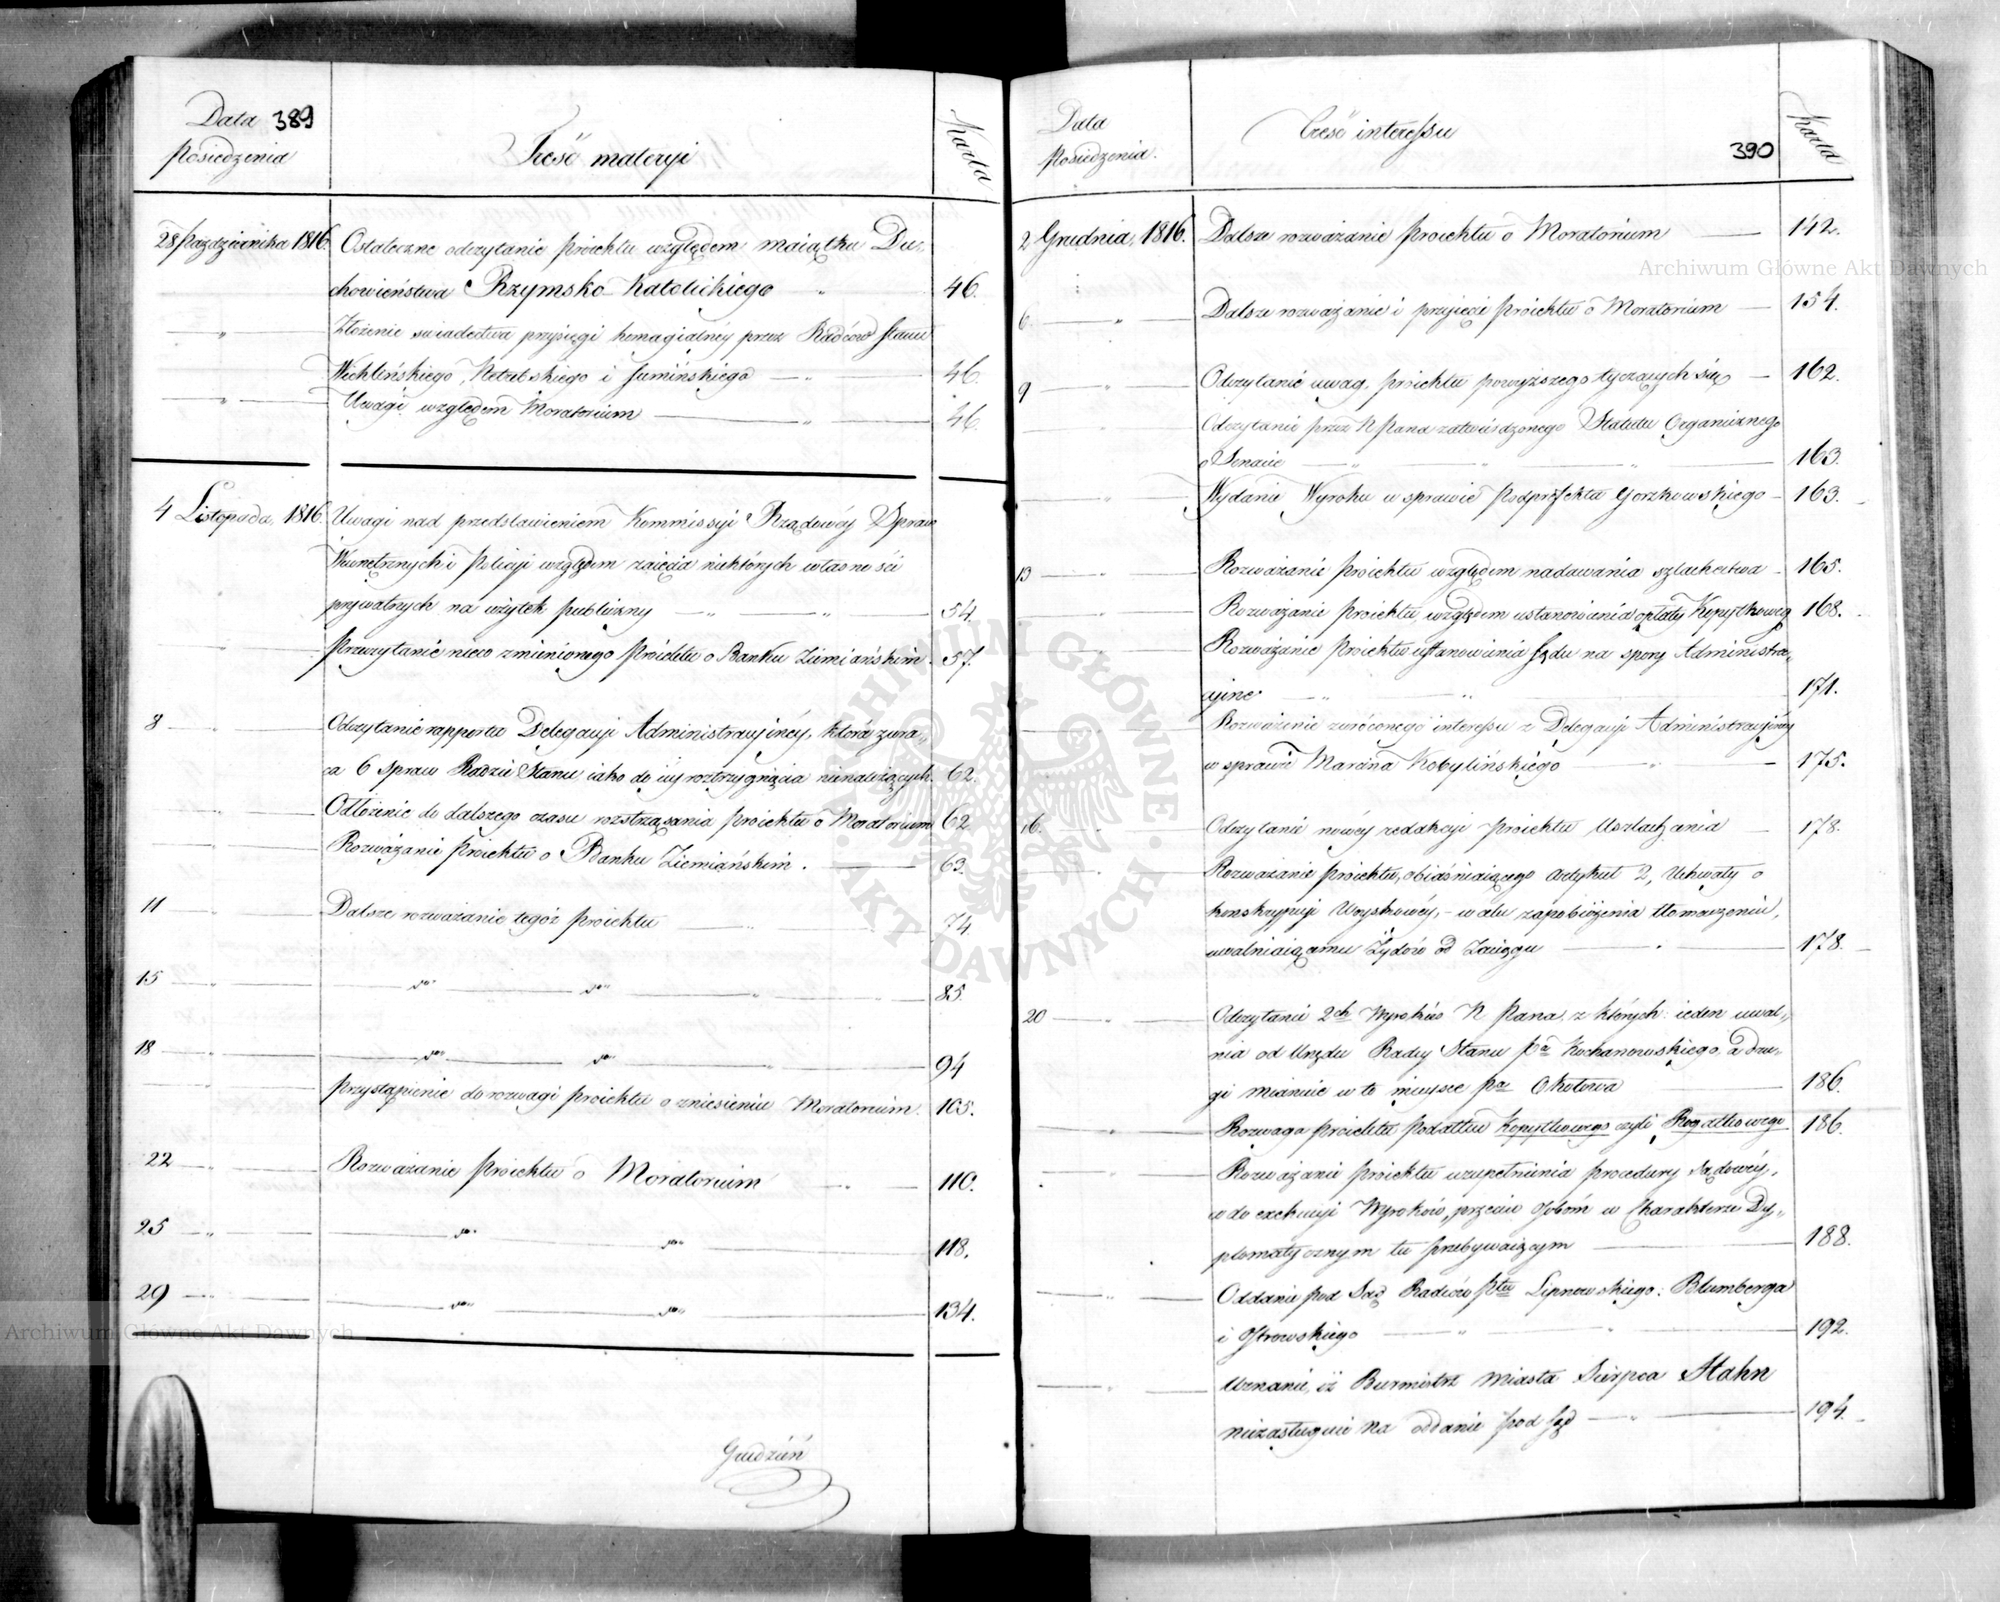 Data 389
Posiedzenia
Treść materyi
Karta
28 Października 1816. Ostateczne odczytanie Proiektu względem maiątku Du-
chowieństwa Rzymsko Katolickiego " 46.
" Złożenie świadectwa przysięgi homagialnéy przez Radców Stanu
Wichlińskiego, i Sumińskiego — " — 46.
" Uwagi względem Moratorium — " — 46.
4 Listopada, 1816. Uwagi nad przedstawieniem Kommissyi Rządowéy Spraw
Wewnętrznych i Policyi względem zaięcia niektórych własności
prywatnych na użytek publiczny — " — " — 54.
" Przeczytanie nieco zmienionego Proiektu o Banku Ziemiańskim. 57.
8 — " — Odczytanie rapportu Delegacyi Administracyinéy, która zwra-
ca 6 spraw Radzie Stanu iako do iéy roztrzygnięcia nienależących. 62.
" Odłożenie do dalszego czasu roztrząsania Proiektu o Moratorium 62.
" Rozważanie Proiektu o Banku Ziemiańskim. — 63.
11 — " — Dalsze rozważanie tegóż Proiektu — " — 74
15 — " — do — do — " — 85.
18 — " — do — do — " — 94
" Przystąpienie do rozwagi Proiektu o zniesieniu Moratorium. 105.
22 — " — Rozważanie Proiektu o Moratorium — " — 110.
25 — " — do — do — 118.
29 — " — do — do — 134.
Grudzień
Data
Posiedzenia.
Treść interessu
390
Karta
2 Grudnia, 1816. Dalsze rozważanie Proiektu o Moratorium — 142.
6 — " — Dalsze rozważanie i przyięcie Proiektu o Moratorium — 154.
9 — " — Odczytanie uwag, Proiektu powyższego tyczących się — 162.
" Odczytanie przez N Pana zatwierdzonego Statutu Organicznego
o Senacie — " — " — " — 163.
" Wydanie Wyroku w sprawie Podprefekta Gorzkowskiego — 163.
13 — " — Rozważanie Proiektu względem nadawania szlachectwa — 165.
" Rozważanie Proiektu względem ustanowienia opłaty Kopytkowego 168.
Rozważanie Proiektu ustanowienia Sądu na spory Administra-
cyine. — " — " — 171.
Rozważenie zwróconego interessu z Delegacyi Administracyinéy
w sprawie Marcina Kobylińskiego — " — 175.
16. — Odczytanie nowéy redakcyi Proiektu Uszlachcania — 178.
" Rozważanie Proiektu, obiaśniaiącego Artykuł 2, Uchwały o
konskrypcyi Woyskowéy, — w celu zapobieżenia tłomaczeniu,
uwalniaiącemu Żydów od Zaciągu — " — 178.
20 — " — Odczytanie 2ch Wyroków N Pana, z których: ieden uwal-
nia od Urzędu Radcy Stanu Pa Kochanowskiego, a dru-
gi mianuie w to mieysce Pa Okołowa — 186.
" Rozwaga Proiektu Podatku Kopytkowego czyli Rogatkowego 186.
" Rozważanie Proiektu uzupełnienia procedury Sądowéy,
co do exekucyi Wyroków, przeciw osobom w Charakterze Dy-
plomatycznym tu przebywaiącym — 188.
" Oddanie pod Sąd Radców Ptu Lipnowskiego: Blumberga
i Ostrowskiego — " — " — 192.
" Uznanie, iż Burmistrz Miasta Sierpca Stahn
niezasługuie na oddanie pod Sąd — " — 194.
Archiwum Główne Akt Dawnych
Archiwum Główne Akt Dawnych
ARCHIWUM GŁÓWNE · AKT DAWNYCH ·